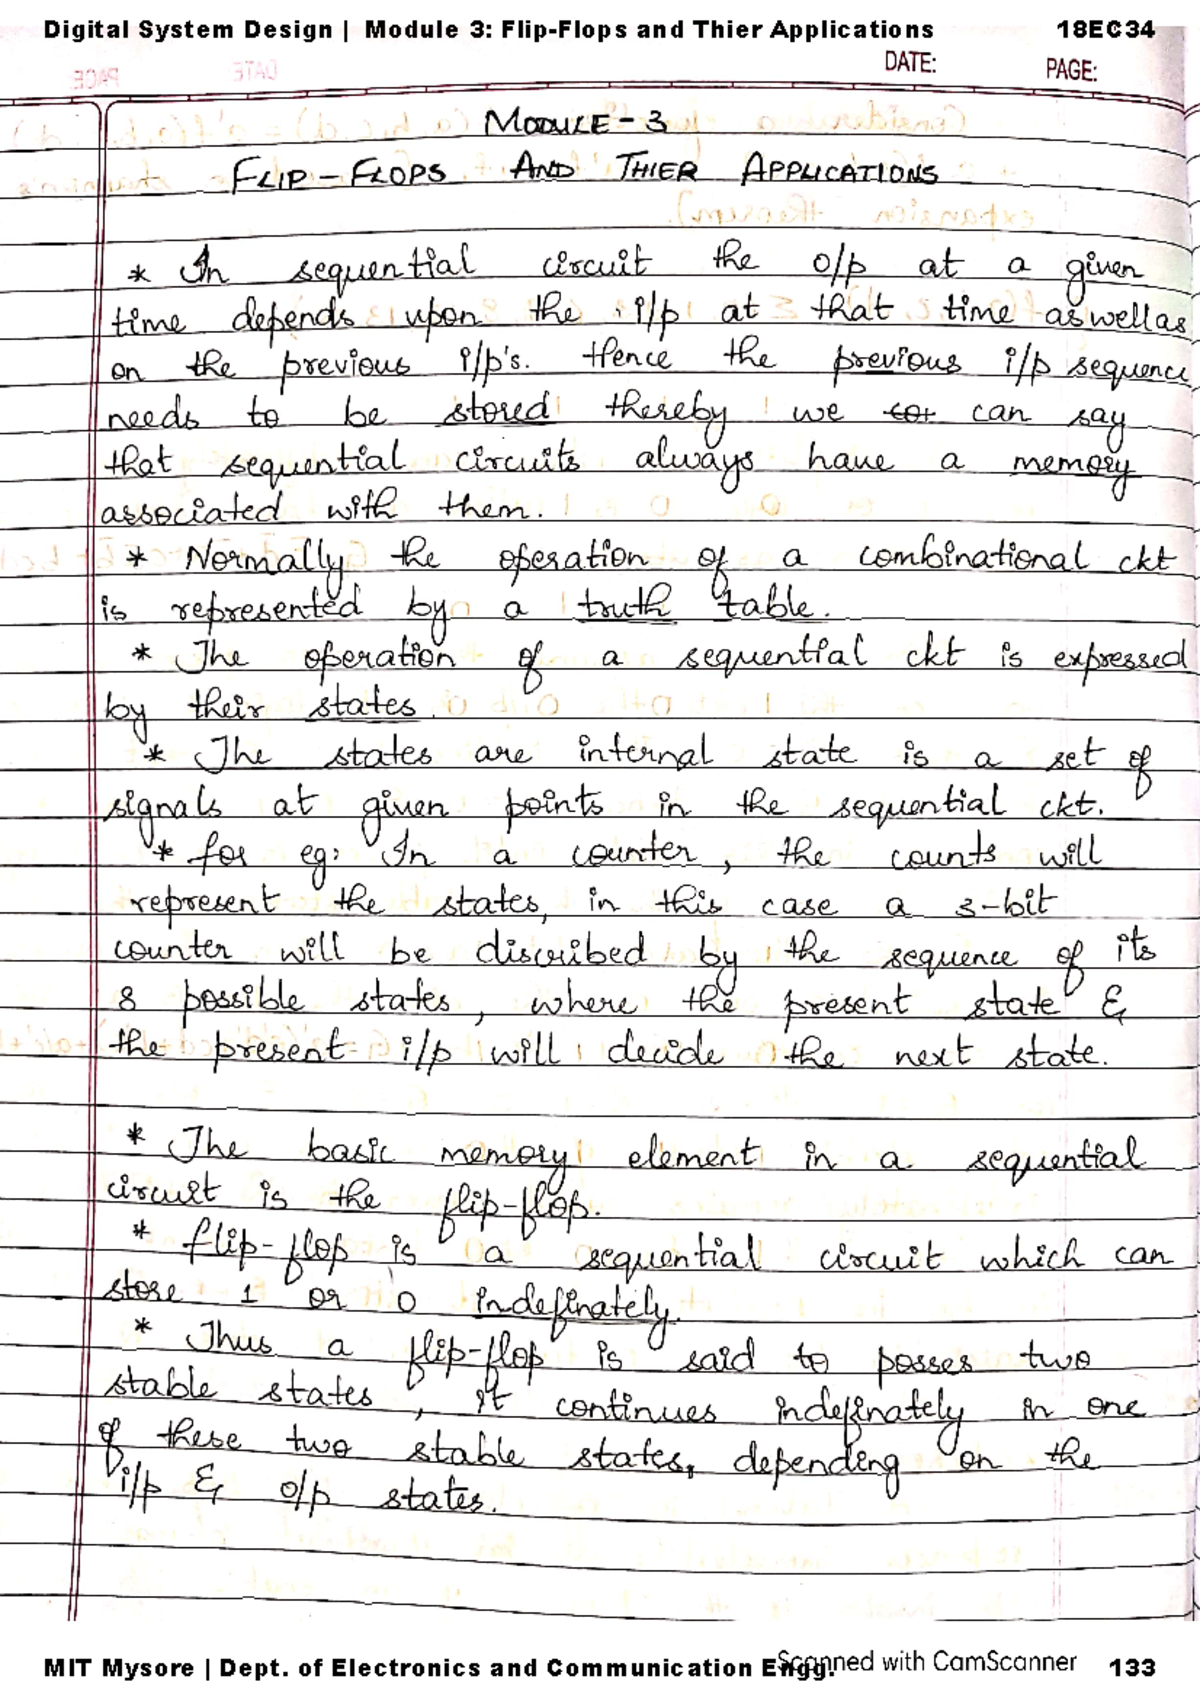 Digital System Design | Module 3: Flip-Flops and Thier Applications 18EC34
DATE: PAGE:
MODULE-3
FLIP-FLOPS AND THIER APPLICATIONS
* In sequential circuit the o/p at a given
time depends upon the i/p at that time aswellas
on the previous i/p's. Hence the previous i/p sequence
needs to be stored thereby we can say
that sequential circuits always have a memory
associated with them.
* Normally the operation of a combinational ckt
is represented by a truth table.
* The operation of a sequential ckt is expressed
by their states.
* The states are internal state is a set of
signals at given points in the sequential ckt.
* for eg: In a counter, the counts will
represent the states, in this case a 3-bit
counter will be discribed by the sequence of its
8 possible states, where the present state &
the present i/p will decide the next state.
* The basic memory element in a sequential
circuit is the flip-flop.
* flip-flop is a sequential circuit which can
store 1 or 0 indefinately.
* Thus a flip-flop is said to posses two
stable states, it continues indefinately in one
of these two stable states, depending on the
i/p & o/p states.
MIT Mysore | Dept. of Electronics and Communication Engg. Scanned with CamScanner 133